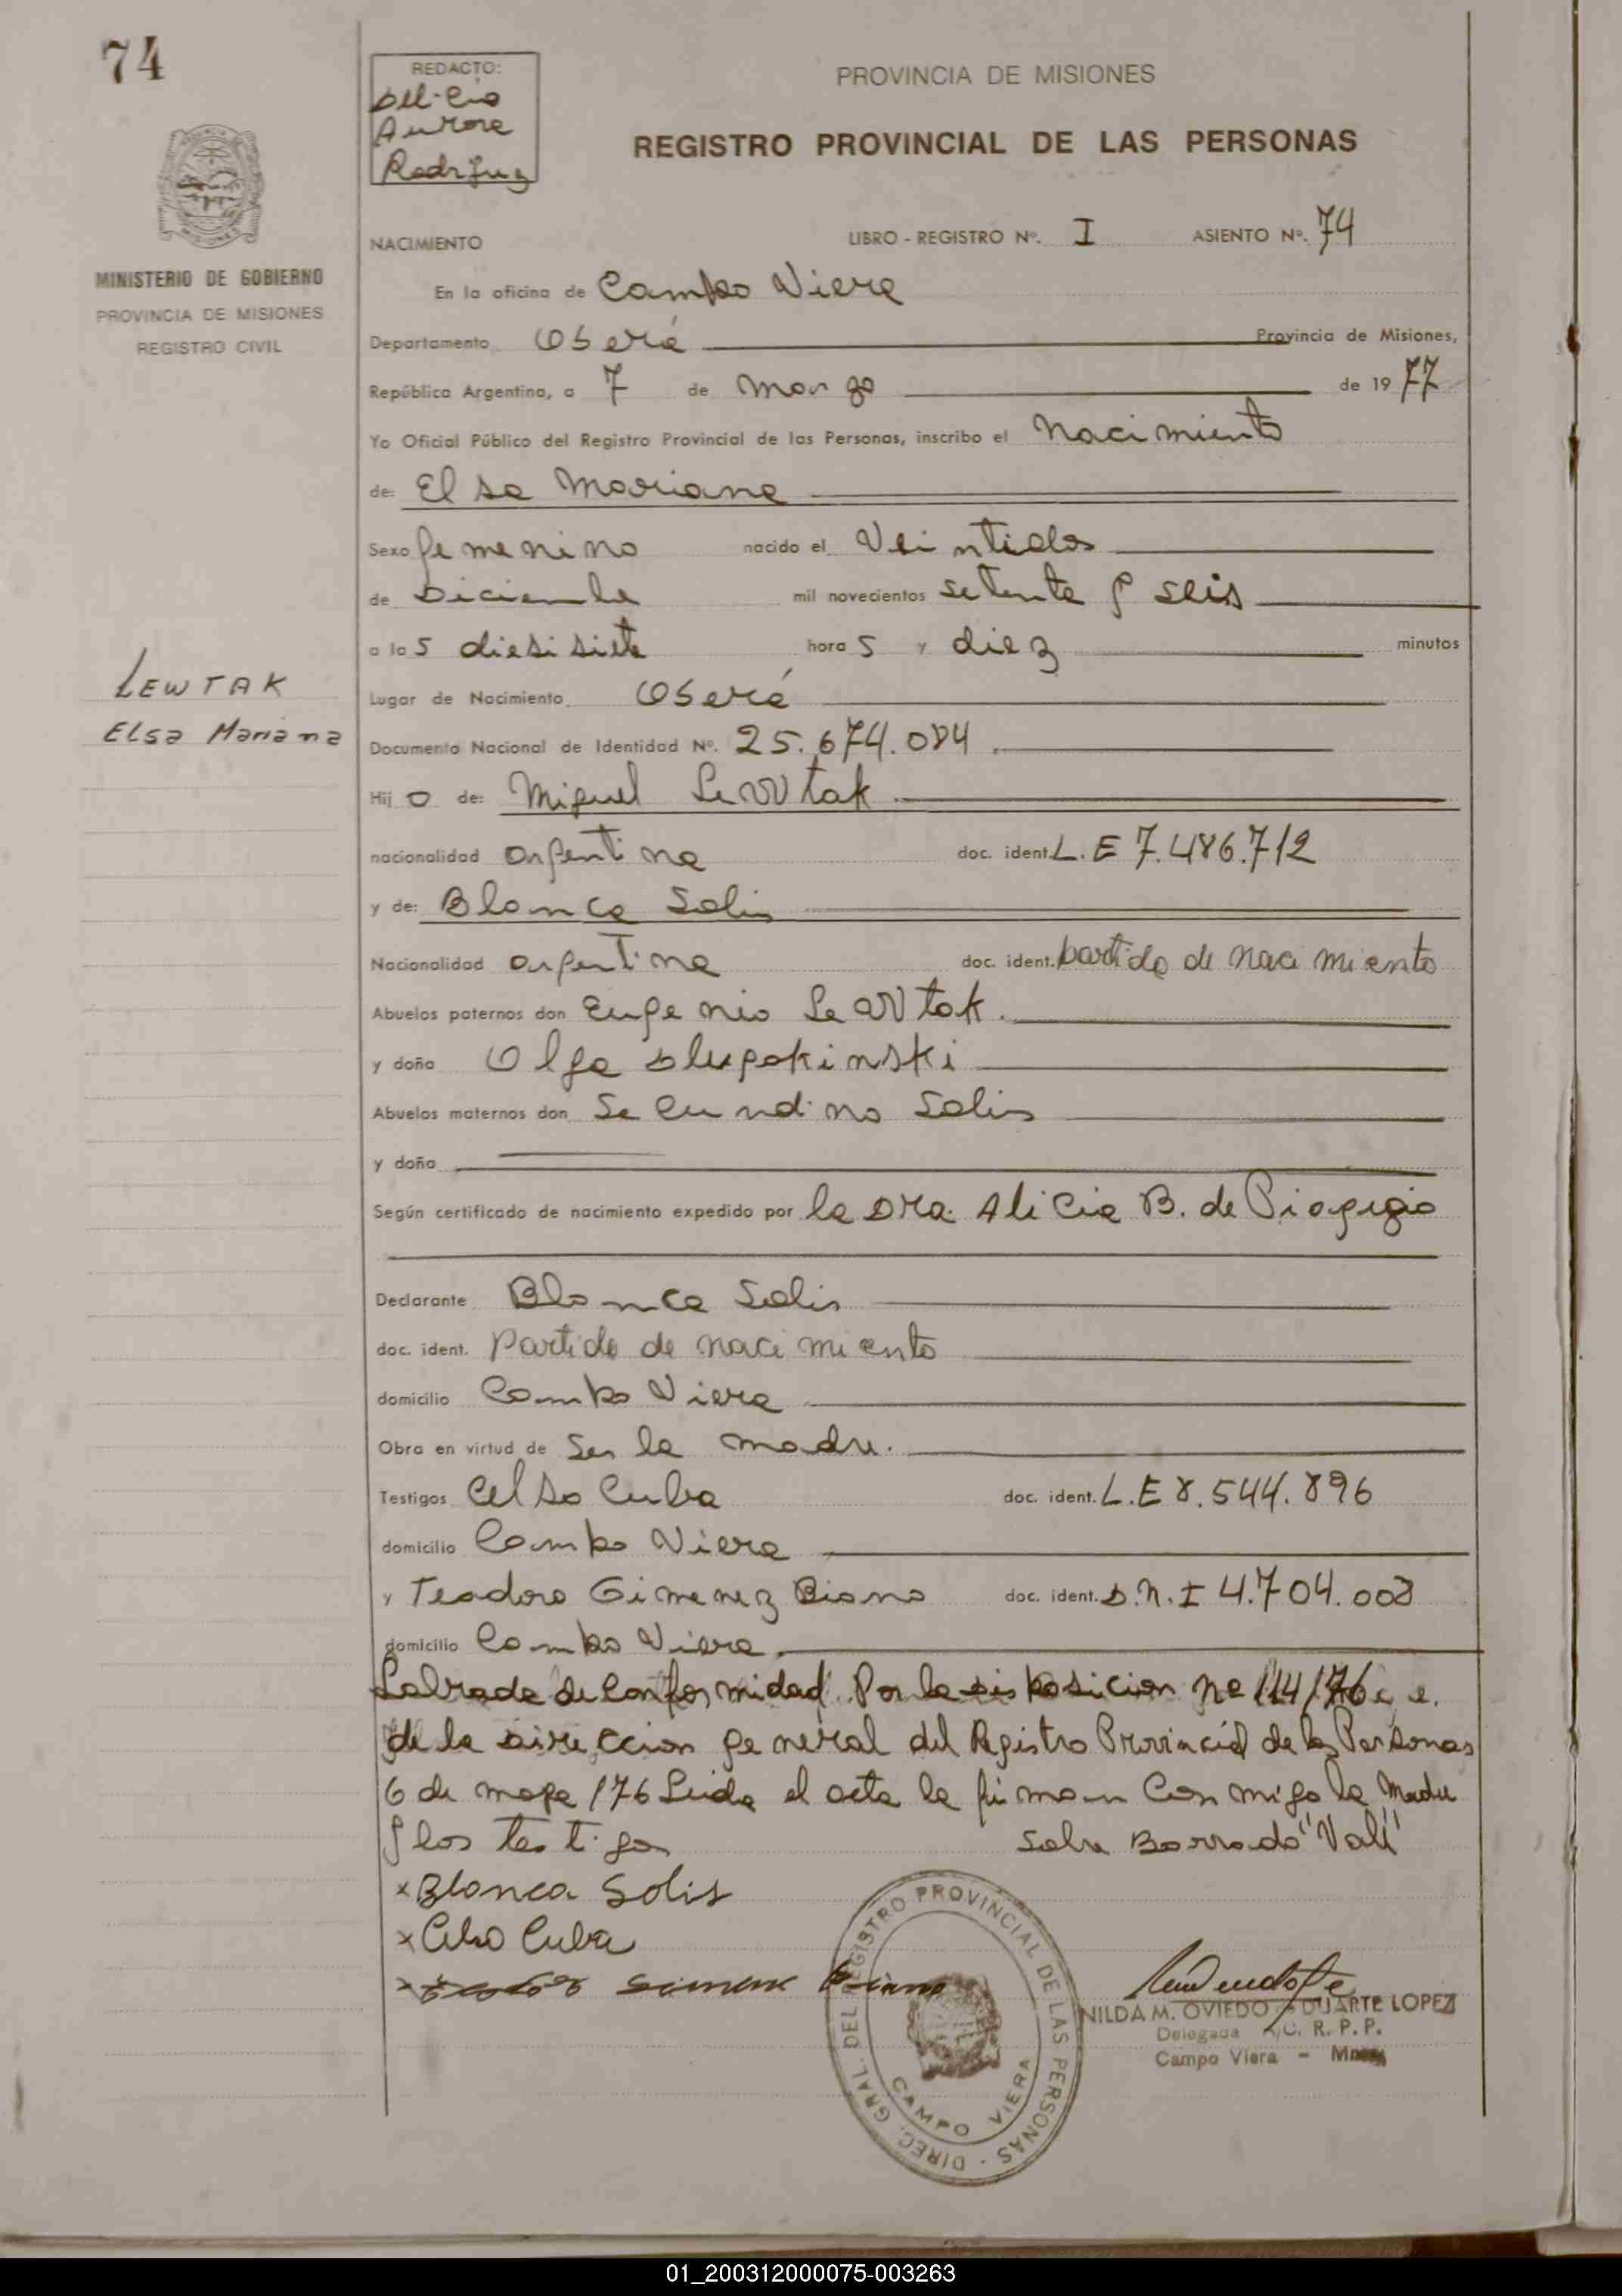 74
REDACTO:
Aurora
Rodriguez
PROVINCIA DE MISIONES
REGISTRO PROVINCIAL DE LAS PERSONAS
MINISTERIO DE GOBIERNO
PROVINCIA DE MISIONES
REGISTRO CIVIL
NACIMIENTO LIBRO - REGISTRO Nº. I ASIENTO Nº. 74
En la oficina de Campo Viera
Departamento Oberá Provincia de Misiones,
República Argentina, a 7 de marzo de 1977
Yo Oficial Público del Registro Provincial de las Personas, inscribo el Nacimiento
de: Elsa Mariana
Sexo femenino nacido el Veintidos
de Diciembre mil novecientos setenta y seis
a las diesisiete horas y diez minutos
LEWTAK
Elsa Mariana
Lugar de Nacimiento Oberá
Documento Nacional de Identidad Nº. 25.674.084.
Hijo de: Miguel Lewtak
nacionalidad argentina doc. ident. L.E 7.486.712
y de: Blanca Solis
Nacionalidad argentina doc. ident. partida de nacimiento
Abuelos paternos don Eugenio Lewtak.
y doña Olga
Abuelos maternos don Secundino Solis
y doña
Según certificado de nacimiento expedido por la Dra. Alicia B. de
Declarante Blanca Solis
doc. ident. Partida de nacimiento
domicilio Campo Viera
Obra en virtud de Ser la madre.
Testigos Celso Cuba doc. ident. L.E 8.544.896
domicilio Campo Viera
y Teodoro Gimenez Biano doc. ident. D.N.I 4.704.008
domicilio Campo Viera.
Labrada de conformidad Por la disposicion Nº 114/76
de la direccion general del Registro Provincial de las Personas
6 de mayo 176 Leida el acta la firman Conmigo la Madre
y los testigos Sobre Borrado "Vale"
x Blanca Solis
x Celso Cuba
DIREC. GRAL. DEL REGISTRO PROVINCIAL DE LAS PERSONAS
CAMPO VIERA
NILDA M. OVIEDO DUARTE LOPEZ
Delegada A/C. R. P. P.
Campo Viera - Mnes
01_200312000075-003263